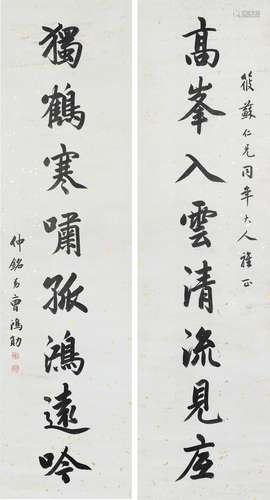 筱蘇仁兄同年大人雅正
高峯入雲清流見底
獨鶴寒嘯孤鴻遠吟
仲銘弟曹鴻勛